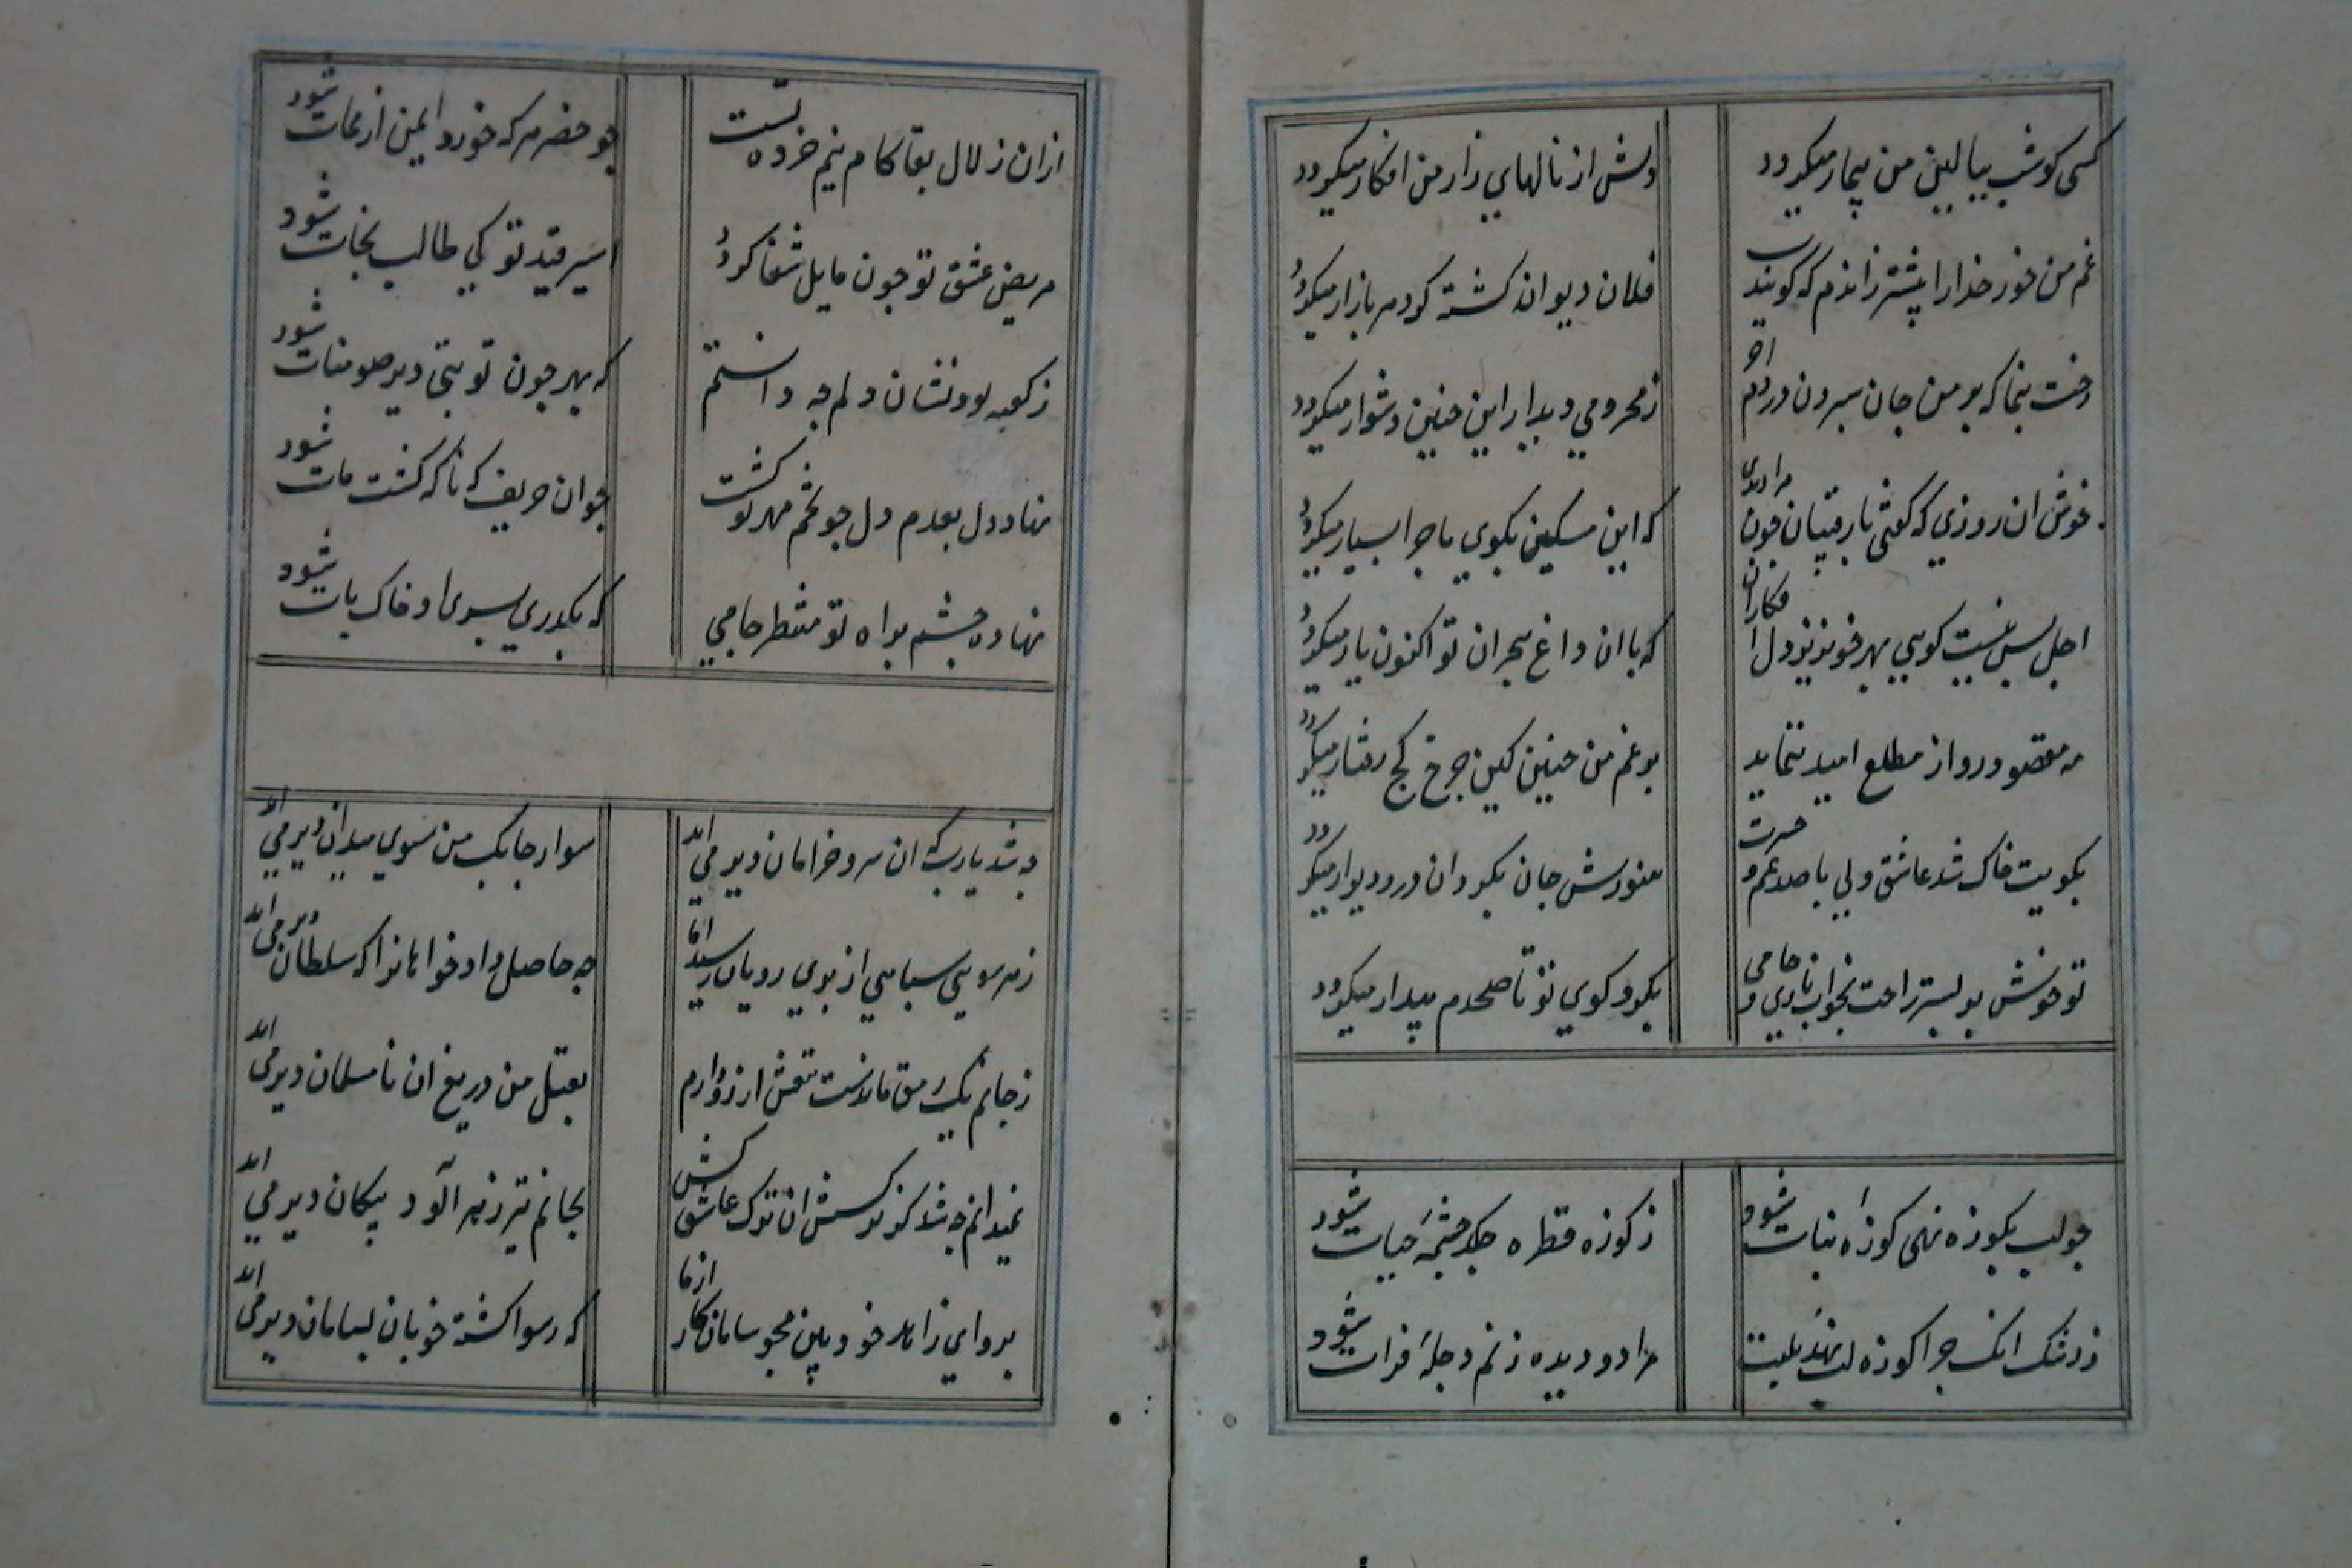 کسی کو شب ببالین من بیمار میکردد
دلش از نالهای زار من افکار میکردد
غم من خور خدارا پیشتر زاندم که کویند
فلان دیوانه کشته کو دسر بازار میکردد
رخت بنما که بر من جان سپردن در دم اخر
ز محرومی دیدار این جنین دشوار میکردد
خوش ان روزی که کفتی با رقیبان جون مرا دیدی
که این مسکین بکوی ما جرا بسیار میکردد
اجل بس نیست کویی بهر خونریز دل افکاران
که با ان داغ هجران تو اکنون یار میکردد
مه مقصود رو از مطلع امید ننماید
بر غم من جنین کین جرخ کج رفتار میکردد
بکویت خاک شد عاشق ولی با صد غم و حسرت
هنوزش جان بکرد ان در و دیوار میکردد
تو خوش بر بستر راحت بخواب ناز و جامی
بکرد کوی تو تا صبحدم بیدار میکردد
جو لب بکوزه نهی کوزه نبات شود
ز کوزه قطره جکد جشمۀ حیات شود
ز رشک انک جرا کوزه لب نهد بلبت
مرا دو دیده ز نم دجلۀ فرات شود
ازان زلال بقا کام نیم خرده تست
جو خضر هر که خورد ایمن از ممات شود
مریض عشق تو جون مایل شفا کردد
اسیر قید تو کی طالب نجات شود
ز کعبه بود نشان دلم جه دانستم
که بهر جون تو بتی دیر صومنات شود
نهاد دل بعدم دل جو تخم مهر تو کشت
جو ان حریف که ناکه کشت مات شود
نهاده جشم براه تو منتظر جامی
که بکذری بسری او خاک پات شود
جه شد یارب که ان سرو خرامان دیر می اید
سوار جابک من سوی میدان دیر می اید
ز هر سویی سباهی از بری رویان رسید اما
جه حاصل داد خواهانرا که سلطان دیر می اید
ز جانم یک رمق ماندست تیغش ارزو دارم
بقتل من دریغ ان نا مسلمان دیر می اید
نمیدانم جه شد کز ترکش ان ترک عاشق کش
بجانم تیر زهر آلود پیکان دیر می اید
برو ای زاهد خود بین مجو سامان کار از ما
که رسوا کشته خوبان بسامان دیر می اید